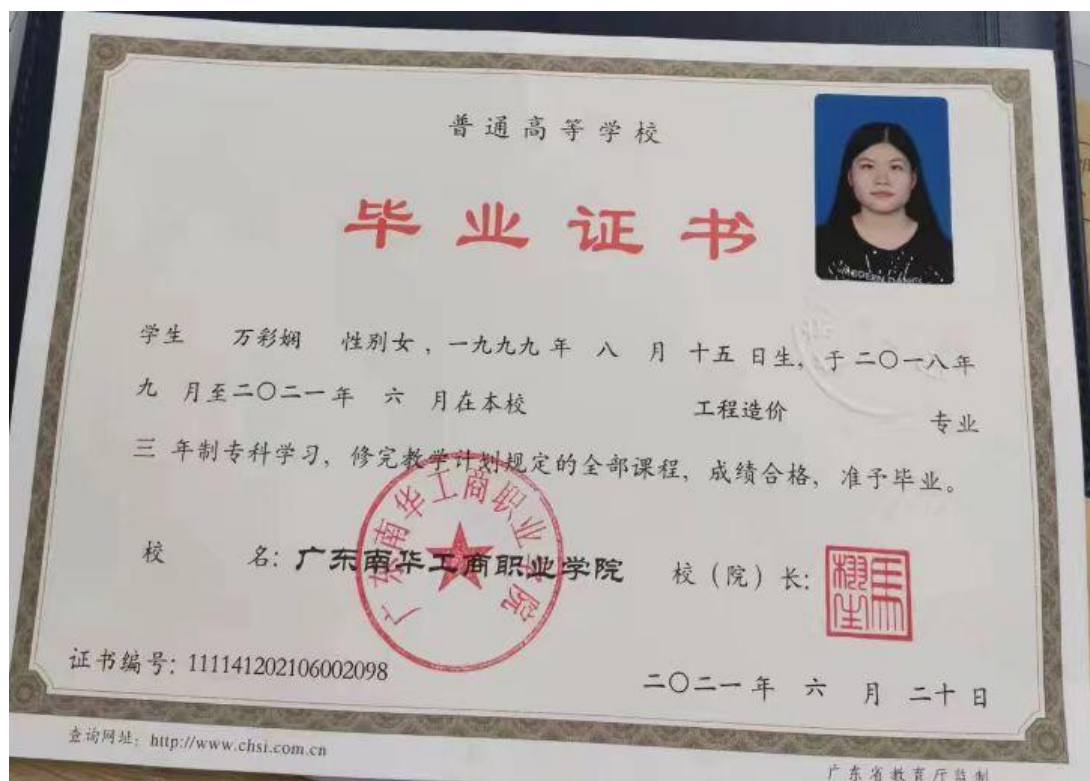 普通高等学校
毕业证书
MODERN DANCE
学生 万彩娴 性别女，一九九九年 八 月 十五 日生，于二〇一八年
九 月至二〇二一年 六 月在本校 工程造价 专业
三 年制专科学习，修完教学计划规定的全部课程，成绩合格，准予毕业。
广东南华工商职业学院
校 名：广东南华工商职业学院 校（院）长：
证书编号：111141202106002098
二〇二一年 六 月 二十日
查询网址：http://www.chsi.com.cn
广东省教育厅监制